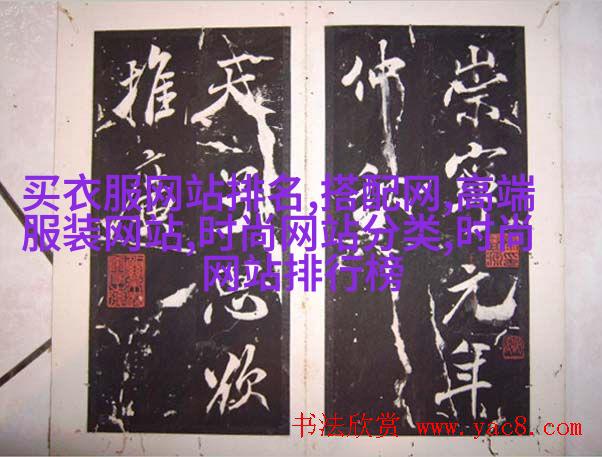 崇寧元年
仲
思欲
推
买衣服网站排名,搭配网,高端
服装网站,时尚网站分类,时尚
网站排行榜
书法欣赏 www.yac8.com